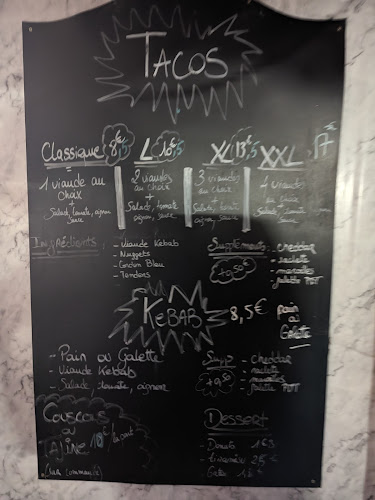 TACOS
Classique 8€ L 10€,5 XL 13€,5 XXL 17€
1 viande au choix + Salade, tomate, oignon, sauce
2 viandes au choix + Salade, tomate oignon, sauce
3 viandes au choix + Salade, tomate oignon, sauce
4 viandes au choix + Salade, tomate oignon, sauce
Ingrédients:
- Viande Kebab
- Nuggets
- Cordon Bleu
- Tenders
Suppléments: - cheddar
- raclette
- galette PDT
+0,50€
KEBAB 8,5€ pain ou Galette
- Pain ou Galette
- Viande Kebab
- Salade, tomate, oignon
Supp - cheddar
- raclette
- galette PDT
+0,50
Couscous
ou
TAJINE 10€/la part
Sur commande
Dessert
- Donuts 1€
- Tiramisu 2,5€